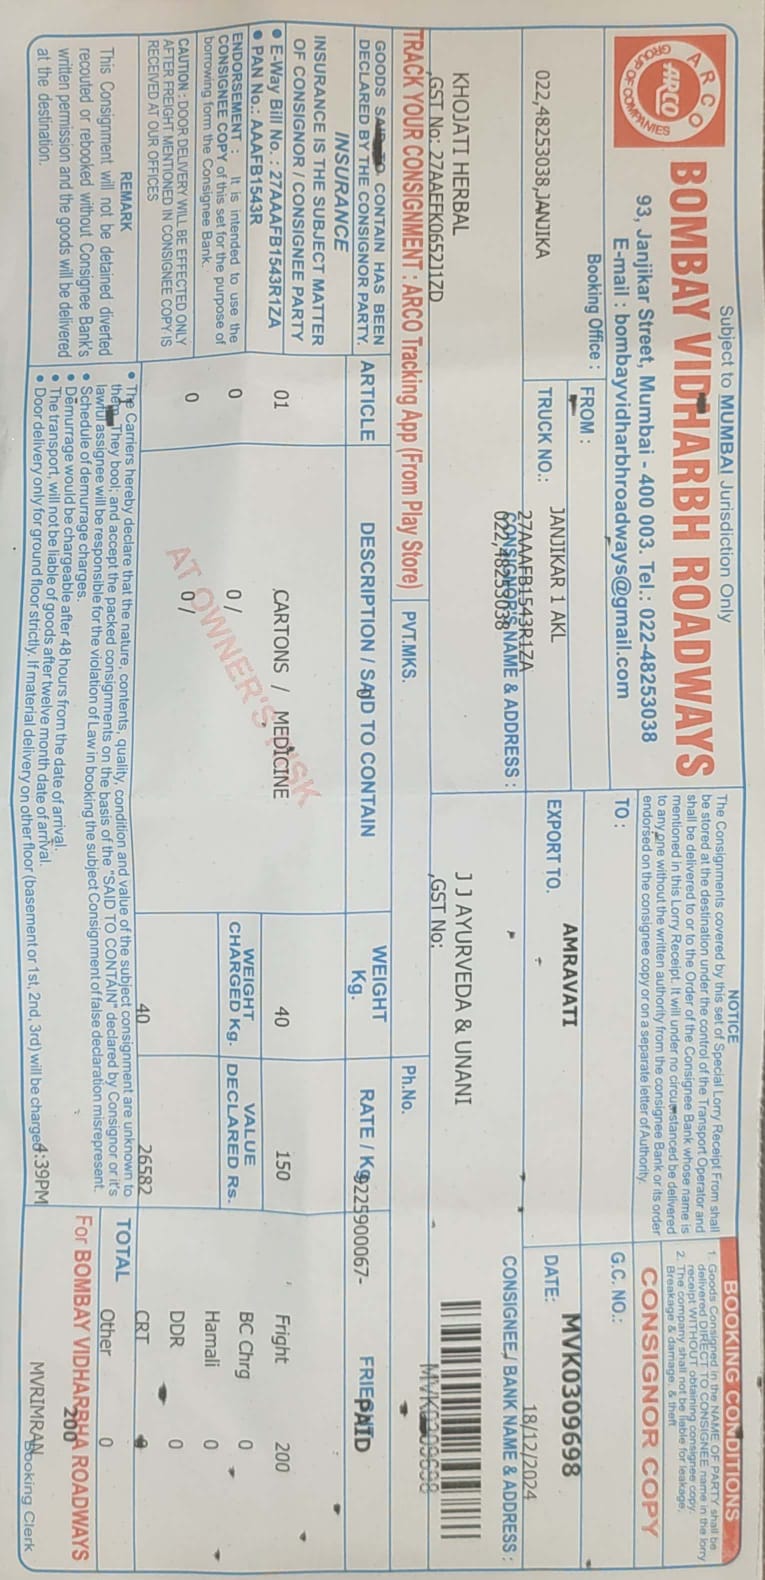 Subject to MUMBAI Jurisdiction Only
ARCO
GROUP OF COMPANIES
ARCO
BOMBAY VIDHARBH ROADWAYS
93, Janjikar Street, Mumbai - 400 003. Tel.: 022-48253038
E-mail : bombayvidharbhroadways@gmail.com
NOTICE
The Consignments covered by this set of Special Lorry Receipt From shall
be stored at the destination under the control of the Transport Operator and
shall be delivered to or to the Order of the Consignee Bank whose name is
mentioned in this Lorry Receipt. It will under no circumstanced be delivered
to any one without the written authority from the consignee Bank or its order
endorsed on the consignee copy or on a separate letter of Authority.
BOOKING CONDITIONS
1. Goods Consigned in the NAME OF PARTY shall be
delivered DIRECT TO CONSIGNEE name in the lorry
receipt WITHOUT obtaining consignee copy.
2. The company shall not be liable for leakage,
Breakage & damage, & theft
CONSIGNOR COPY
Booking Office :
022,48253038,JANJIKA
FROM :
TO :
G.C. NO.:
MVK0309698
TRUCK NO.:
JANJIKAR 1 AKL
27AAAFB1543R1ZA
022,48253038
EXPORT TO.
AMRAVATI
DATE:
18/12/2024
CONSIGNOR'S NAME & ADDRESS :
CONSIGNEE/ BANK NAME & ADDRESS :
KHOJATI HERBAL
,GST No: 27AAEFK0652J1ZD
J J AYURVEDA & UNANI
,GST No:
MVK0309698
TRACK YOUR CONSIGNMENT : ARCO Tracking App (From Play Store)
PVT.MKS.
Ph.No.
9225900067-
PAID
GOODS SAID TO CONTAIN HAS BEEN
DECLARED BY THE CONSIGNOR PARTY.
INSURANCE
INSURANCE IS THE SUBJECT MATTER
OF CONSIGNOR / CONSIGNEE PARTY
• E-Way Bill No. : 27AAAFB1543R1ZA
• PAN No.: AAAFB1543R
ENDORSEMENT : It is intended to use the
CONSIGNEE COPY of this set for the purpose of
borrowing form the Consignee Bank.
CAUTION : DOOR DELIVERY WILL BE EFFECTED ONLY
AFTER FREIGHT MENTIONED IN CONSIGNEE COPY IS
RECEIVED AT OUR OFFICES
REMARK
This Consignment will not be detained diverted
recouted or rebooked without Consignee Bank's
written permission and the goods will be delivered
at the destination.
ARTICLE DESCRIPTION / SAID TO CONTAIN WEIGHT Kg. RATE / Kg.
01 CARTONS / MEDICINE 40 150 Fright 200
0 0 / WEIGHT CHARGED Kg. VALUE DECLARED Rs. BC Chrg 0
Hamali 0
0 0 / DDR 0
40 26582 CRT
Other 0
AT OWNER'S RISK
• The Carriers hereby declare that the nature, contents, quality, condition and value of the subject consignment are unknown to
them. They bool; and accept the packed consignments on the basis of the "SAID TO CONTAIN" declared by Consignor or it's
lawful assignee will be responsible for the violation of Law in booking the subject Consignment of false declaration misrepresent.
• Schedule of demurrage charges.
• Demurrage would be chargeable after 48 hours from the date of arrival.
• The transport, will not be liable of goods after twelve month date of arrival.
• Door delivery only for ground floor strictly. If material delivery on other floor (basement or 1st, 2nd, 3rd) will be charged
4:39PM
TOTAL
200
For BOMBAY VIDHARBHA ROADWAYS
MVRIMRAN
Booking Clerk